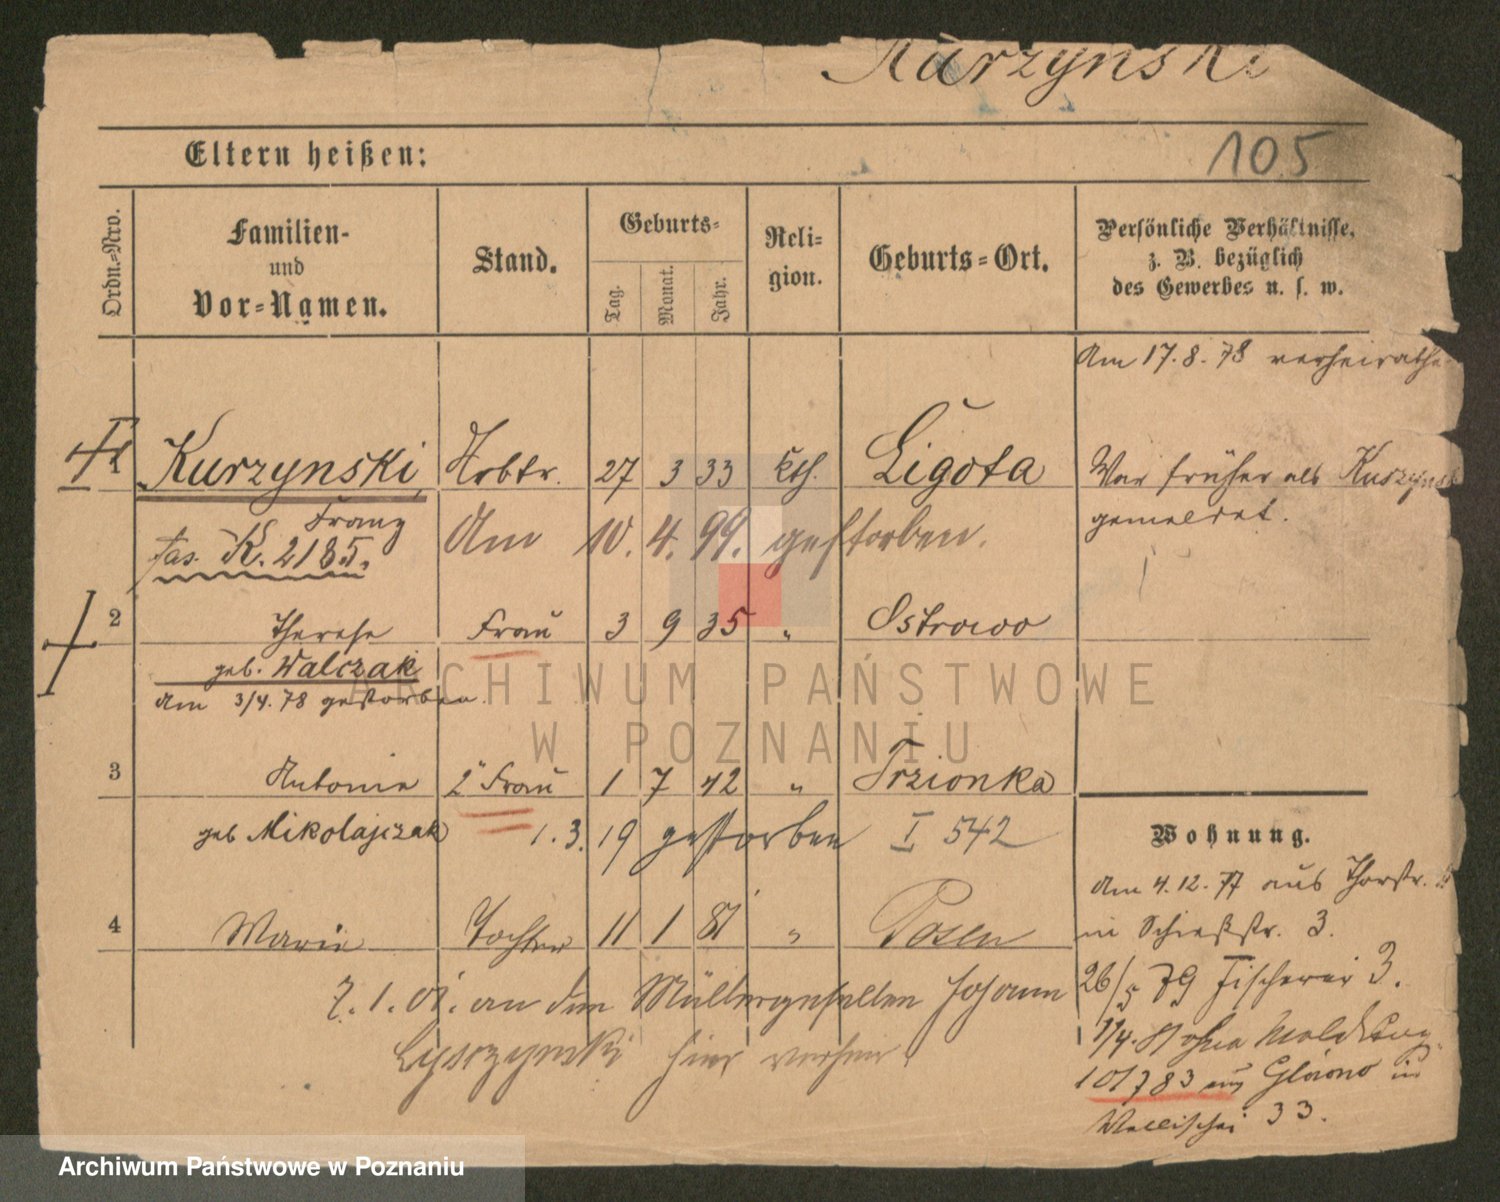 Kurzynski
105
Eltern heißen:
Ordn.-Nro.
Familien- und Vor-Namen.
Stand.
Geburts-
Tag.
Monat.
Jahr.
Reli-
gion.
Geburts-Ort.
Persönliche Verhältnisse,
z. B. bezüglich
des Gewerbes u. s. w.
Am 17.8.78 verheirathe
Kurzynski, Arbtr. 27 3 33 kth. Ligota
War früher als Kurzynsk
gemeldet.
Franz
K. 2185.
Am 10. 4. 99. gestorben.
2 Therese Frau 3 9 35 " Ostrowo
geb. Walczak
am 3/4. 78 gestorben.
3 Antonie 2" Frau 1 7 42 " Trzionka
geb Mikolajczak 1. 3. 19 gestorben I 542
Wohnung.
Am 4.12.77 aus Thorstr.
in Schießstr. 3.
4 Marie Tochter 11 1 81 " Posen
26/5 79 Fischerei 3.
7. 1. 01. an den Müllergesellen Johann
Lyszzynski hier verheir.
1/4. 81 ohne Meldung.
101783 aus Glowno in
Wallischei 33.
ARCHIWUM PAŃSTWOWE
W POZNANIU
Archiwum Państwowe w Poznaniu